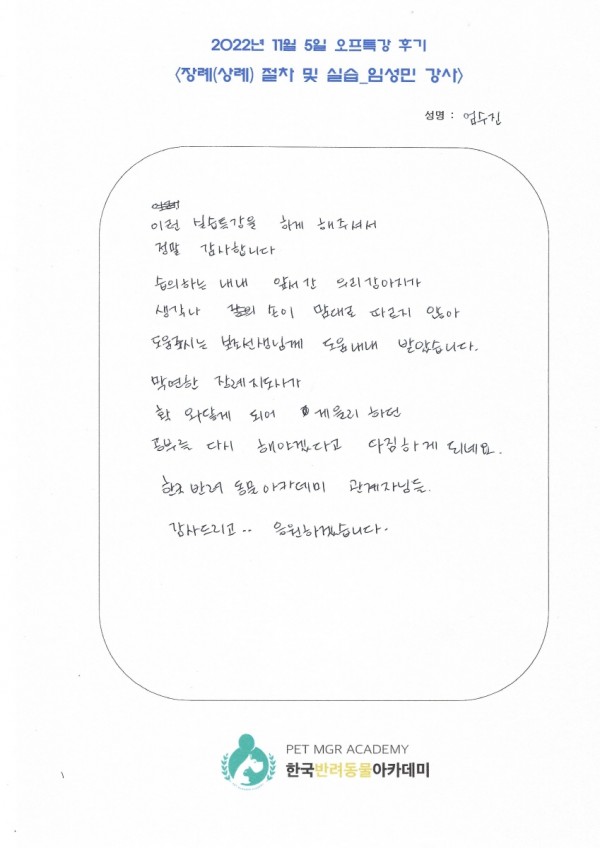 2022년 11월 5일 오프특강 후기
<장례(상례) 절차 및 실습_임성민 강사>
성명 : 엄수진
이런 실습특강을 하게 해주셔서
정말 감사합니다
습의하는 내내 앞서간 우리강아지가
생각나 손이 맘대로 따르지 않아
도움주시는 보조선생님께 도움내내 받았습니다.
막연한 장례지도사가
확 와닿게 되어 게을리 하던
공부를 다시 해야겠다고 다짐하게 되네요.
한국반려 동물아카데미 관계자님들.
감사드리고.. 응원하겠습니다.
PET MGR ACADEMY
한국반려동물아카데미